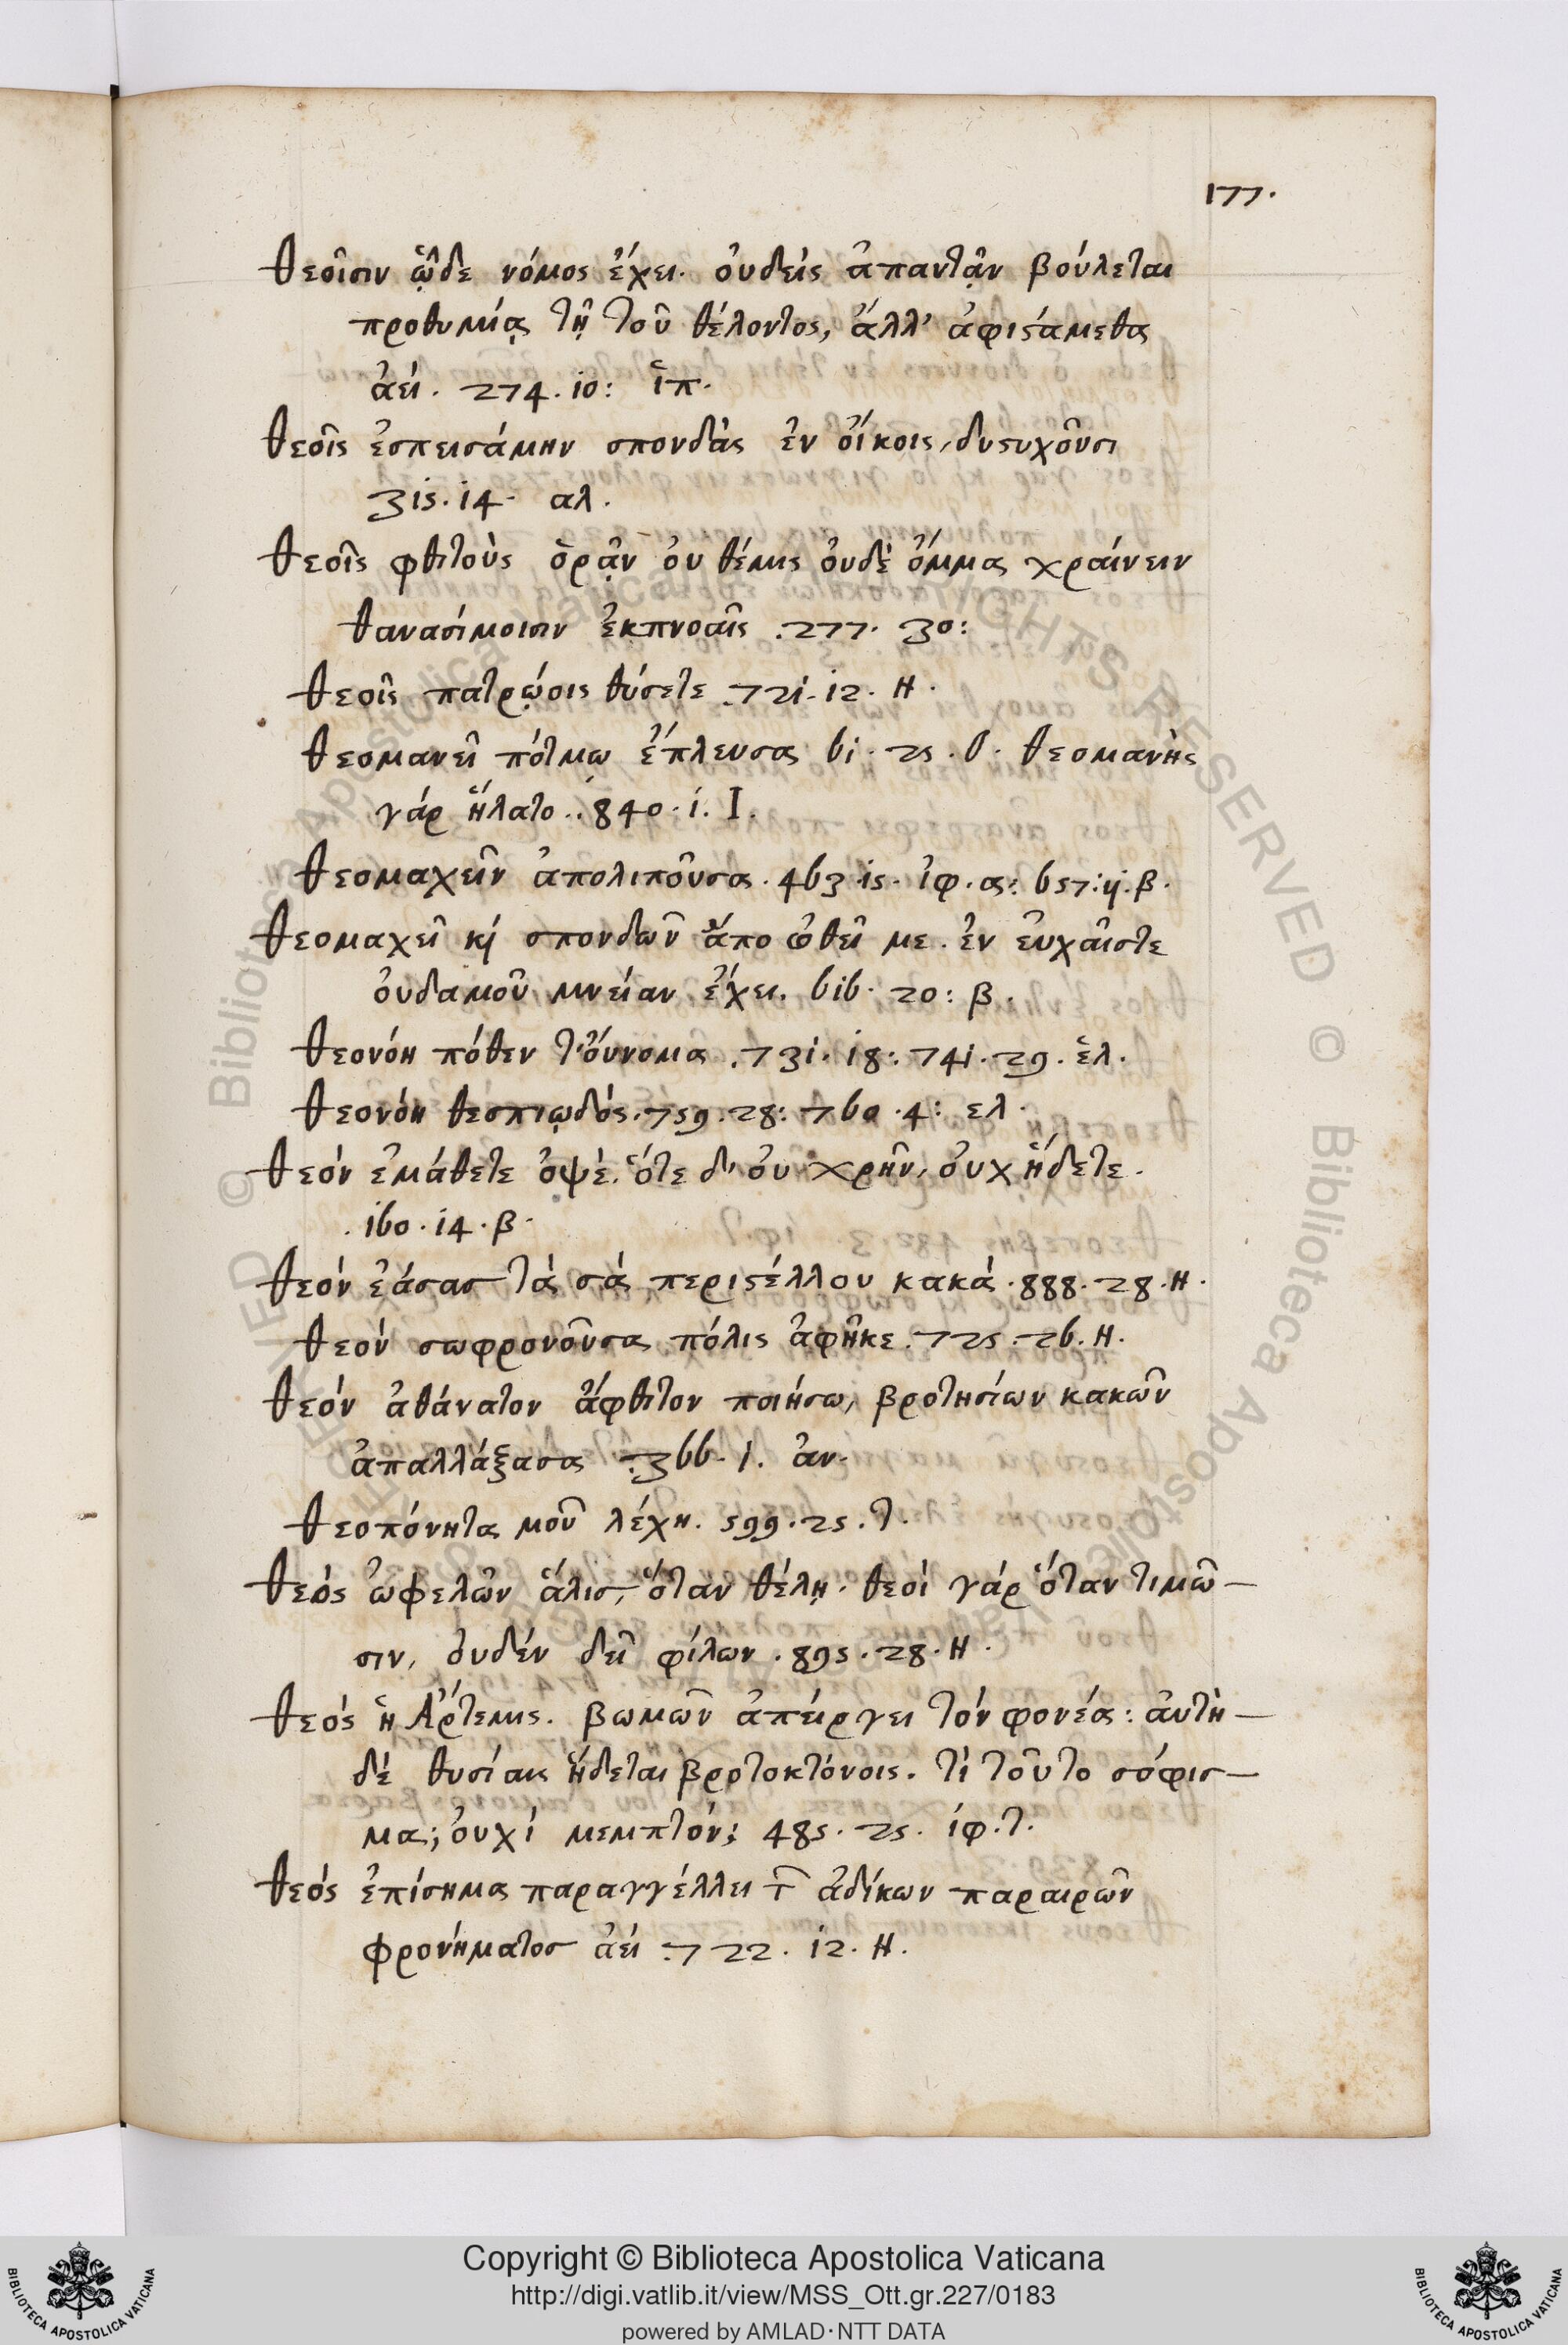 177.
θεοῖσιν ᾧδε νόμος ἔχει. ὀυδεὶς ἀπαντᾷν βούλεται
προθυμίᾳ τῇ τοῦ θέλοντος, ἄλλ' ἀφιςάμεθα
ἀεί. 274. 10: ἱπ.
θεοῖς ἐσπεισάμην σπονδὰς ἐν οἴκοις, δυςυχοῦσι
315. 14. αλ.
θεοῖς φθιτοὺς ὁρᾷν ὀυ θέμις ὀυδὲ ὄμμα χραίνειν
θανασίμοισιν ἐκπνοαῖς. 277. 30:
θεοῖς πατρῴοις θύσετε. 721. 12. Η.
θεομανεῖ πότμῳ ἔπλευσα 61. 25. θ. θεομανὴς
γάρ ἥλατο.. 840. 1. Ι.
θεομαχεῖν ἀπολιποῦσα. 463. 15. ἰφ. α: 657: ij. β.
θεομαχεῖ κὶ σπονδῶν ἄπο ὠθεῖ με. ἐν ἐυχαῖστε
ὀυδαμοῦ μνείαν ἔχει. 616. 20: β.
θεονόη πόθεν τ'όυνομα. 731. 18: 741. 29. ἑλ.
θεονόη θεσπιῳδός. 759. 28: 760. 4: ελ.
θεόν ἐμάθετε ὀψέ. ὅτε δ' ὀυ χρῆν, ὀυχ ἥδετε.
160. 14. β.
θεόν ἐάσας τὰ σά περιςέλλου κακά. 888. 28. Η.
θεόν σωφρονοῦσα πόλις ἀφῆκε. 725. 26. Η.
θεόν ἀθάνατον ἄφθιτον ποιήσω, βροτησίων κακῶν
ἀπαλλάξασα. 366. 1. ἀν.
θεοπόνητα μοῦ λέχη. 599. 25. τ.
θεός ὠφελῶν ἅλις, ὅταν θέλῃ. θεοὶ γάρ ὅταν τιμῶ-
σιν, ὀυδέν δεῖ φίλων. 895. 28. Η.
θεός ἡ Ἄρτεμις. βωμῶν ἀπείργει τόν φονέα: ἀυτὴ-
δέ θυσίαις ἥδεται βροτοκτόνοις. τί τοῦτο σόφισ-
μα; ὀυχί μεμπτόν; 485. 25. ἰφ. τ.
θεός ἐπίσημα παραγγέλλει τ͂ ἀδίκων παραιρῶν
φρονήματος ἀεί. 722. 12. Η.
Copyright © Biblioteca Apostolica Vaticana
http://digi.vatlib.it/view/MSS_Ott.gr.227/0183
powered by AMLAD·NTT DATA